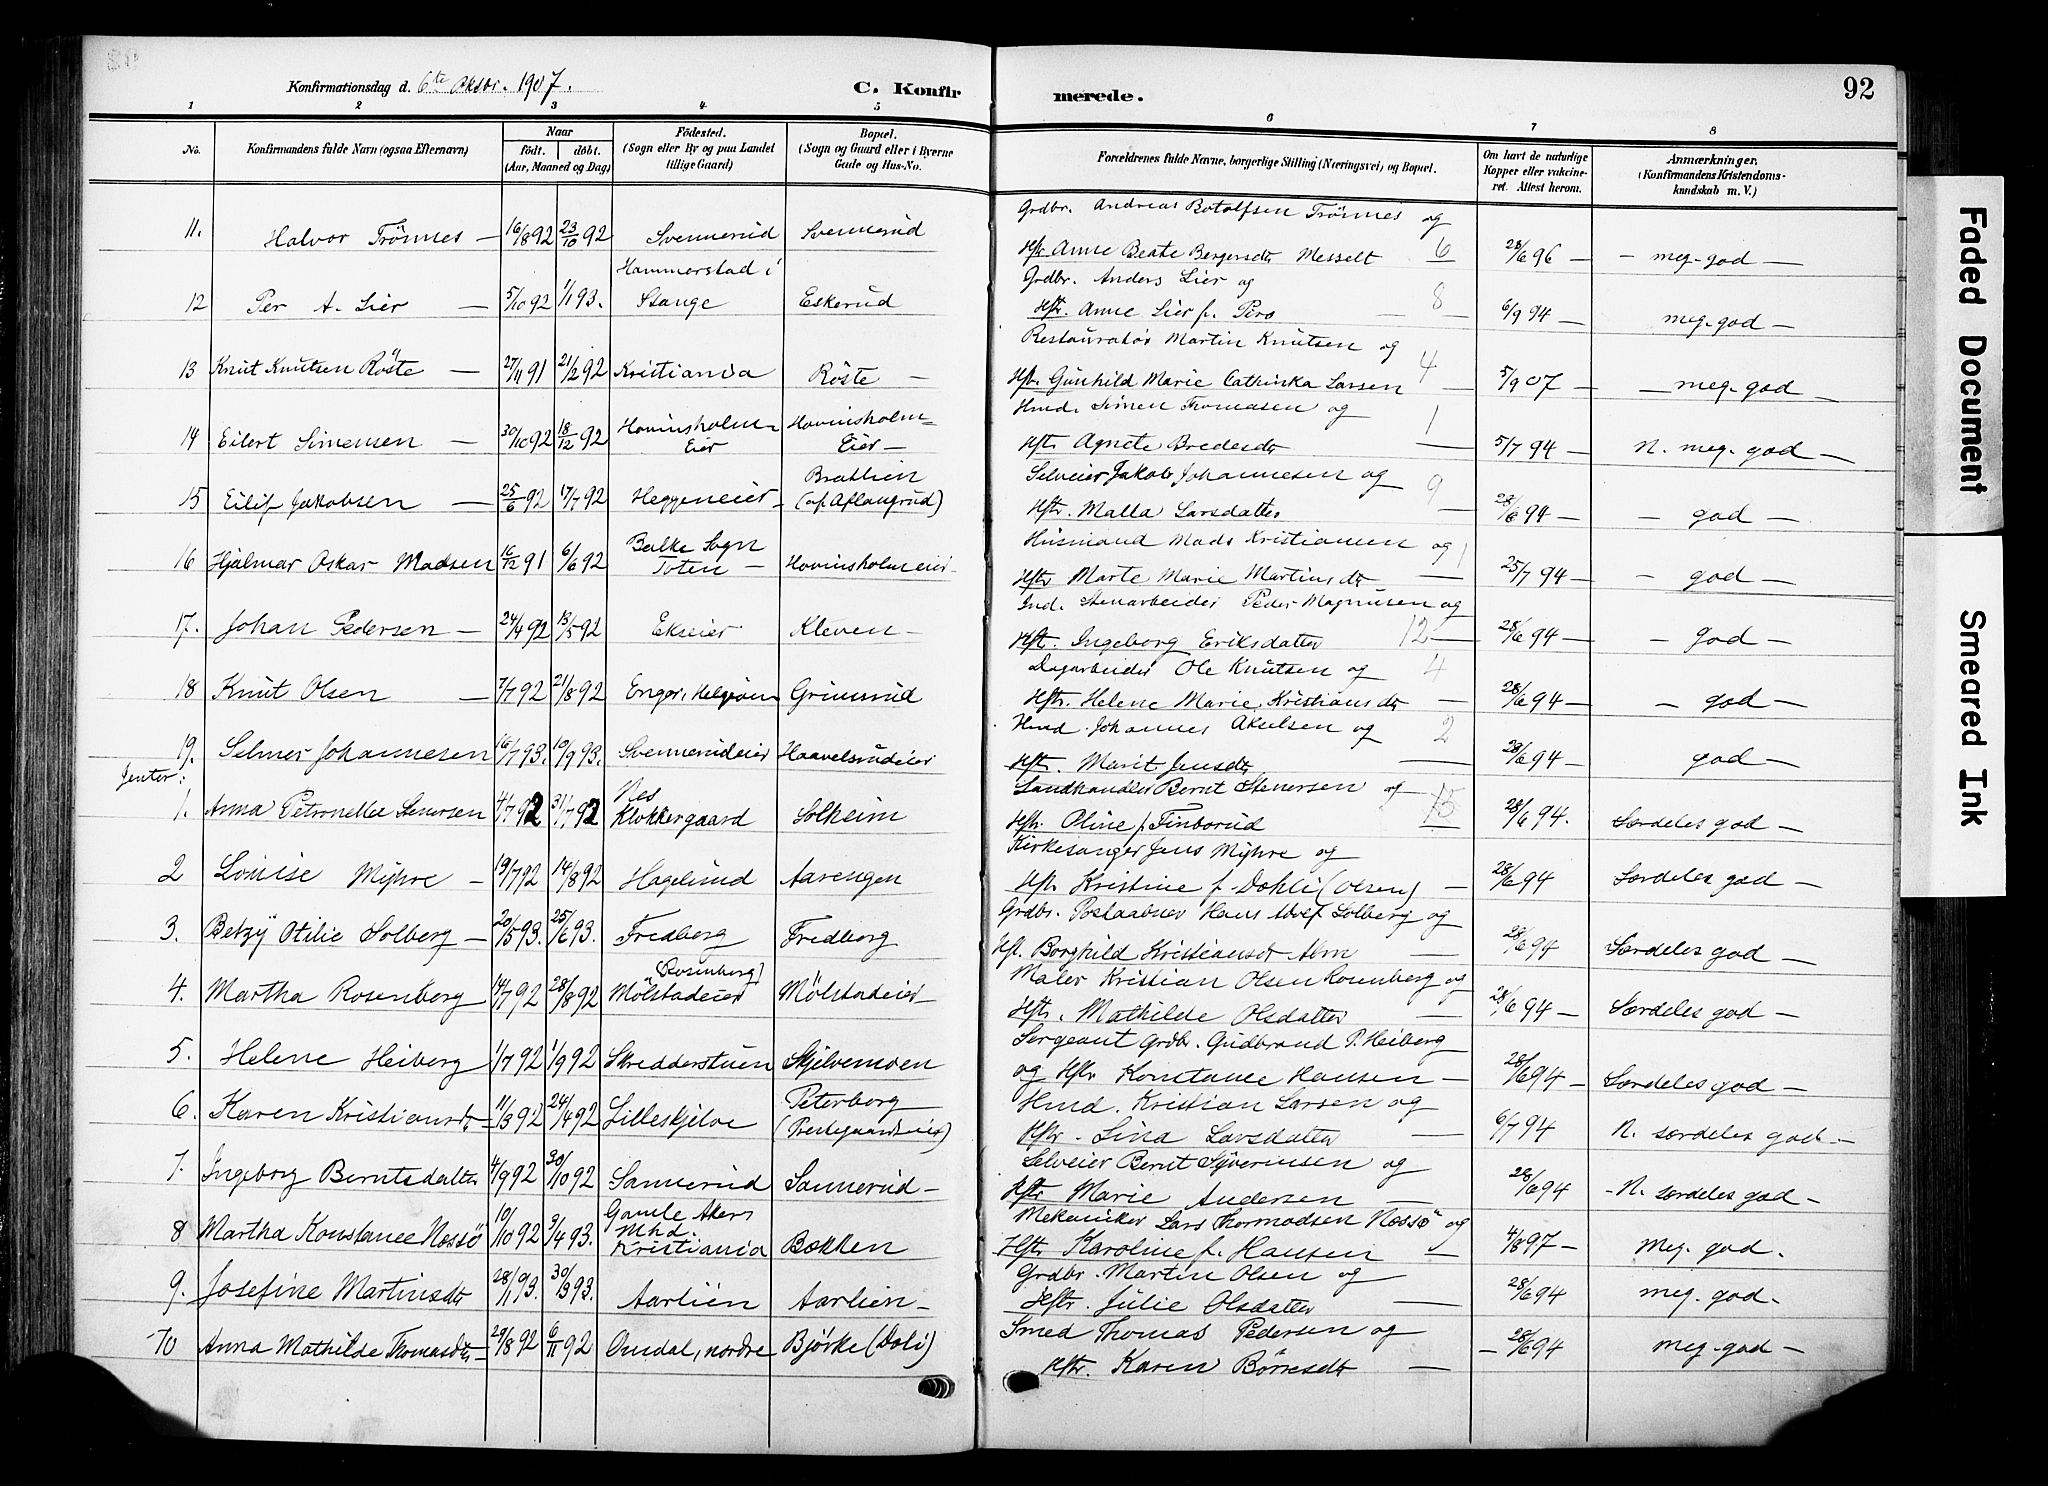 Konfirmationsdag d. 6te Oktbr. 1907. C. Konfirmerede. 92
1 2 3 4 5 6 7 8
No. Konfirmandens fulde Navn (ogsaa Efternavn) Naar födt. döbt. (Aar, Maaned og Dag) Födested. (Sogn eller By og paa Landet tillige Gaard) Bopæl. (Sogn og Gaard eller i Byerne Gade og Hus-No. Forældrenes fulde Navne, borgerlige Stilling (Næringsvei) og Bopæl. Om havt de naturlige Kopper eller vakcineret. Attest herom. Anmærkninger. (Konfirmandens Kristendomskundskab m. V.)
11. Halvor Trönnes — 16/8 92 23/10 92 Svennerud Svennerud Grdbr. Andreas Botolfsen Trönnes og
Hstr Anne Beate Bergersdtr Messelt 6 28/6 96 — — meg. god —
12 Per A. Lier — 5/10 92 1/1 93. Hammerstad i Stange Eskerud Grdbr. Anders Lier og
Hstr. Anne Lier f. Pers — 8 — 6/9 94 — meg. god —
13 Knut Knutsen Röste — 27/11 91 21/2 92 Kristiania Röste — Restauratör Martin Knutsen og
Hstr. Gunhild Marie Cathinka Larsen 4 — 5/9 07 — — meg. god
14 Eilert Simensen — 30/10 92 18/12 92 Hovinsholm-Eier Hovinsholm-Eier — Hmd. Simen Thomasen og
Hstr Agnete Bredesdtr 1 — 5/7 94 — N. meg. god —
15 Eilif Jakobsen — 25/6 92 17/7 92 Heggeneier — Bratlien (af Aflangrud) Selveier Jakob Johannesen og
Hstr. Malla Larsdatter 9 — 28/6 94 — — god —
16 Hjalmar Oskar Madsen 16/12 91 6/6 92 Balke Sogn Toten — Hovinsholmeier- Husmand Mads Kristiansen og
Hstr Marte Marie Martinsdtr 1 — 25/7 94 — — god —
17. Johan Pedersen — 24/4 92 13/5 92 Ekseier Kleven — Ind. Stenarbeider Peder Magnusen og
Hstr. Ingeborg Eriksdatter 12 — 28/6 94 — — god —
18 Knut Olsen — 7/7 92 21/8 92 Enger, Helgöen Grimsrud Dagarbeider Ole Knutsen og
Hstr. Helene Marie Kristiansdtr 4 — 28/6 94 — — god —
19. Selmer Johannesen 16/7 93. 10/9 93. Svennerudeier Haavelsrudeier Hmd. Johannes Akselsen og
Hstr. Marit Jensdtr 2 — 28/6 94 — god —
Jenter:
1. Anna Petronelle Stenersen 4/7 92 31/7 92 Nes Klokkergaard Solheim Landhandler Bernt Stenersen og
Hstr. Oline f. Finborud 15 — 28/6 94. Særdeles god —
2 Lovise Myhre — 19/7 92 14/8 92 Hagelund Aarengen Kirkesanger Jens Myhre og
Hstr Kristine f. Dohli (Olsen) — 28/6 94 Særdeles god —
3. Betzy Otilie Solberg — 20/5 93. 25/6 93. Fredborg Fredborg Grdbr. Postaabner Hans Adolf Solberg og
Hstr. Borghild Kristiansdtr — 28/6 94 Særdeles god —
4. Martha Rosenberg 14/7 92 28/8 92 (Rosenborg) Mölstadeier Mölstadeier — Maler Kristian Olsen Rosenberg og
Hstr. Mathilde Olsdatter — 28/6 94 — Særdeles god —
5. Helene Heiberg 1/7 92 1/9 92 Skredderstuen Skjelvemoen Sergeant Grdbr. Gudbrand P. Heiberg
og Hstr Konstance Hansen — 28/6 94 — Særdeles god —
6. Karen Kristiansdtr — 11/3 92 24/4 92 Lilleskjelve Peterborg (Prestegaardseier) Hmd. Kristian Larsen og
Hstr. Lina Larsdatter — 6/7 94 N. særdeles god. —
7. Ingeborg Berntsdatter 4/9 92 30/10 92 Sannerud Sannerud — Selveier Bernt Syverinsen og
Hstr Marie Andersen — 28/6 94 — N. særdeles god —
8 Martha Konstance Nessö 10/10 92 3/4 93. Gamle Akers Mhd. Kristiania Bækken Mekaniker Lars Thormodsen Nessö og
Hstr Karoline f. Hansen — 4/8 97 — Meg. god.
9. Josefine Martinsdtr 28/1 93. 30/3 93. Aarlien Aarlien — Grdbr. Martin Olsen og
Hstr. Julie Olsdatter — 28/6 94 meg. god —
10 Anna Mathilde Thomasdtr — 29/8 92 6/11 92 Omdal, nordre Björke (Doli) Smed Thomas Pedersen og
Hstr. Karen Börresdtr — — 28/6 94 meg. god —
Faded Document
Smeared Ink